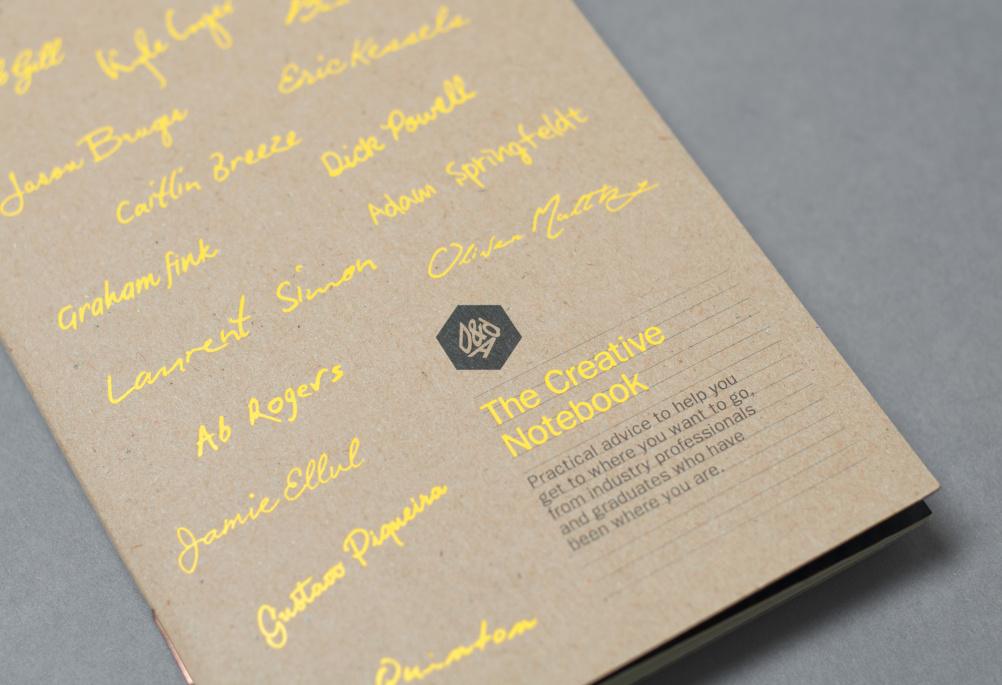 Gill
Kyle Cooper
Eric Kessels
Jason Bruges
Caitlin Breeze
Dick Powell
Adam Springfeldt
Graham Fink
Laurent Simon
Oliver
Ab Rogers
Jamie Ellul
Gustavo Piqueira
Quinton
D&AD
The Creative
Notebook
Practical advice to help you
get to where you want to go,
from industry professionals
and graduates who have
been where you are.